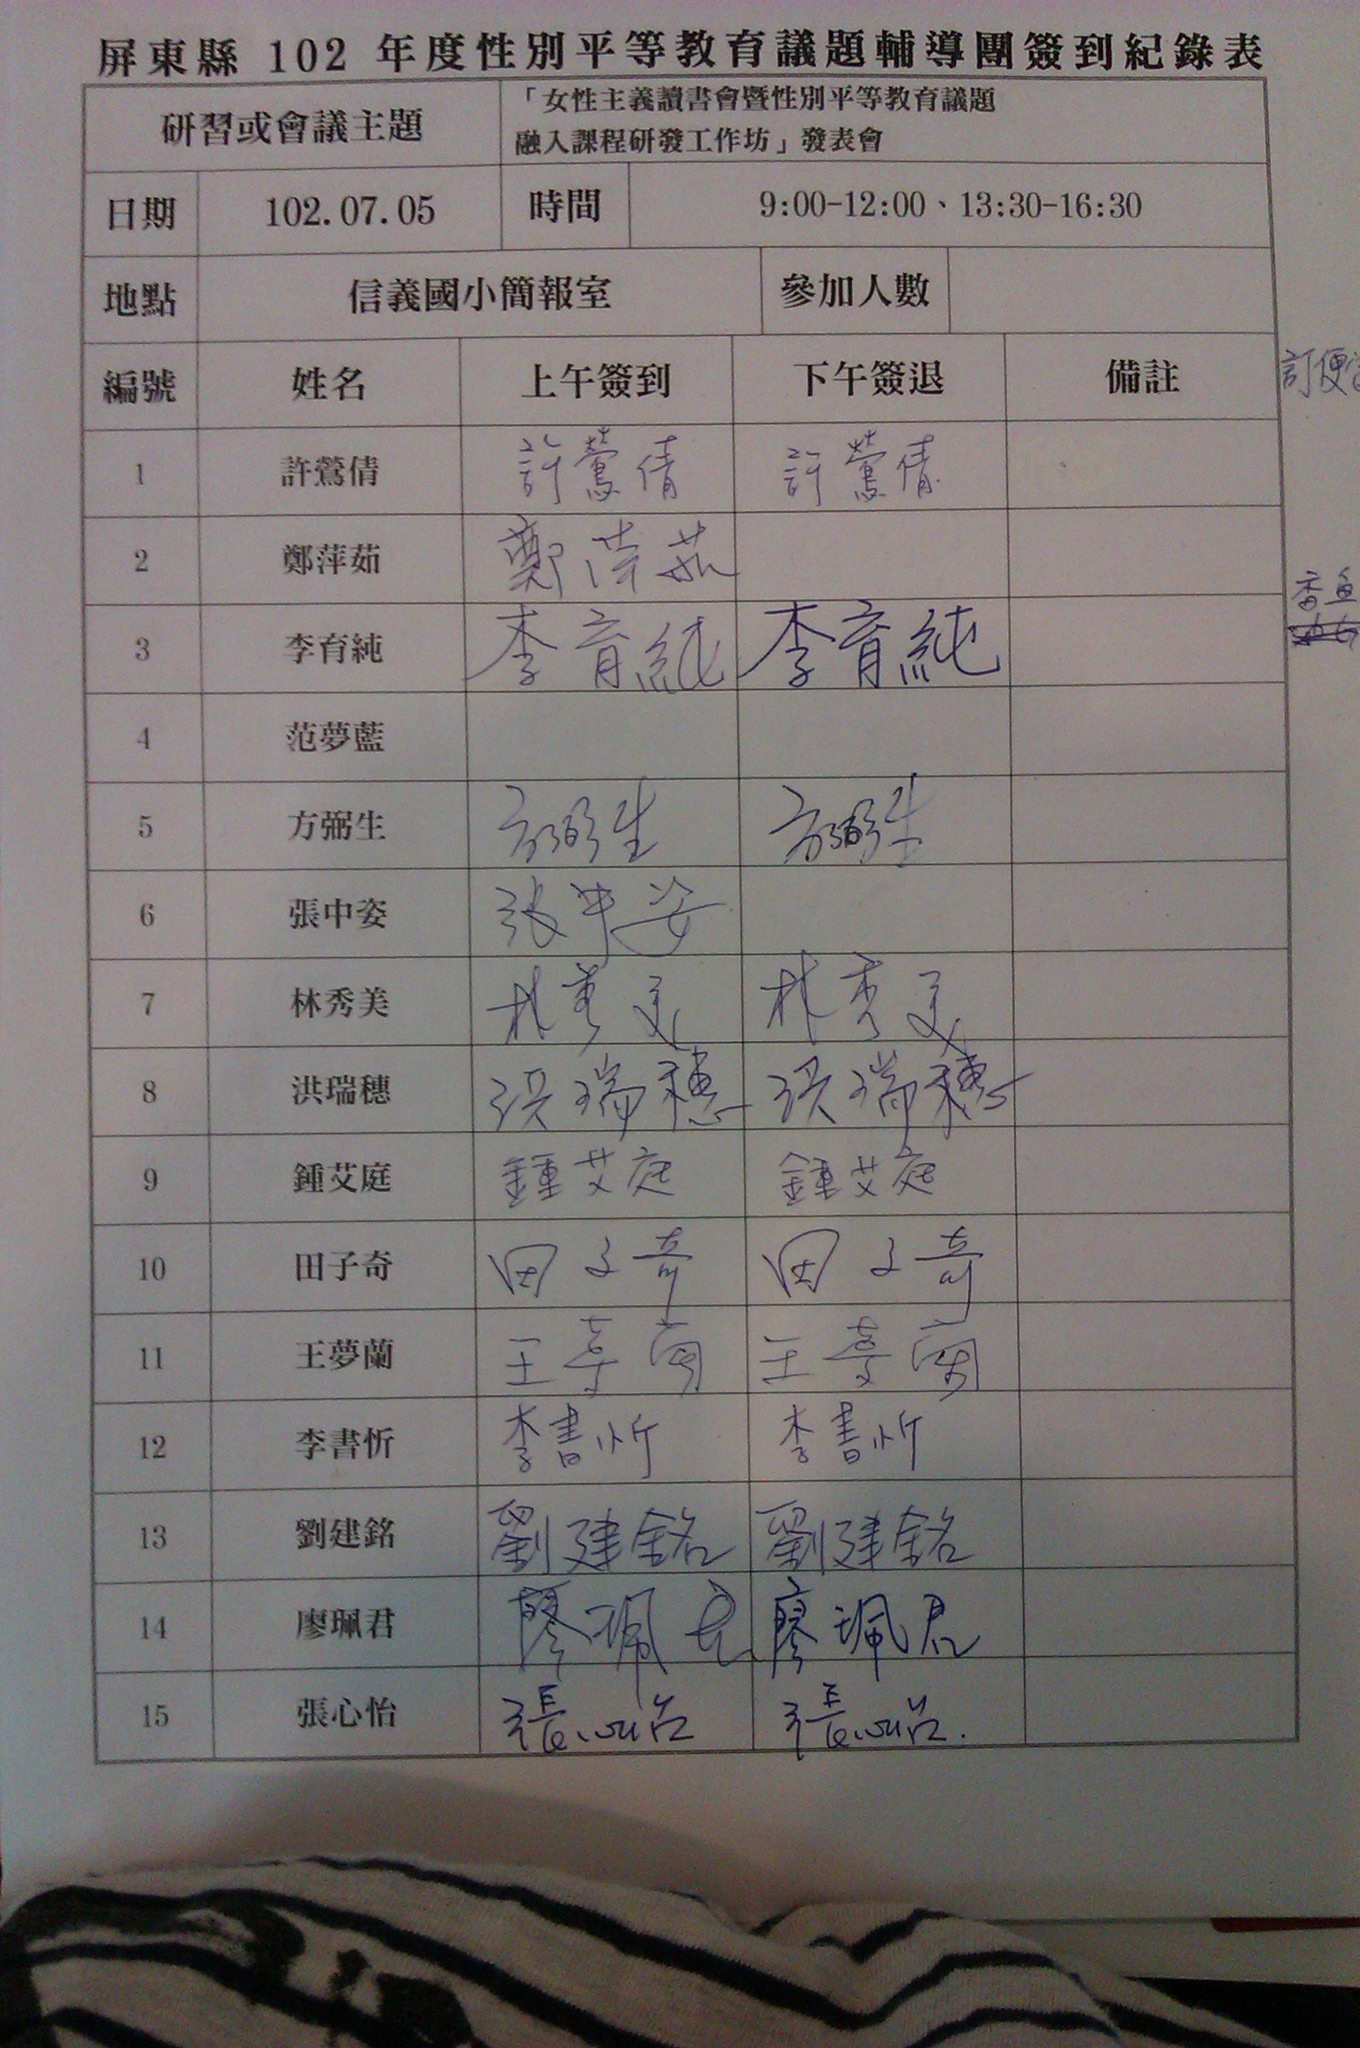 屏東縣 102 年度性別平等教育議題輔導團簽到紀錄表
研習或會議主題 「女性主義讀書會暨性別平等教育議題
融入課程研發工作坊」發表會
日期 102.07.05 時間 9:00-12:00、13:30-16:30
地點 信義國小簡報室 參加人數
編號 姓名 上午簽到 下午簽退 備註 訂便
1 許鶯倩 許鶯倩 許鶯倩
2 鄭萍茹 鄭萍茹
3 李育純 李育純 李育純
4 范夢藍
5 方弼生 方弼生 方弼生
6 張中姿 張中姿
7 林秀美 林秀美 林秀美
8 洪瑞穗 洪瑞穗 洪瑞穗
9 鍾艾庭 鍾艾庭 鍾艾庭
10 田子奇 田子奇 田子奇
11 王夢蘭 王夢蘭 王夢蘭
12 李書忻 李書忻 李書忻
13 劉建銘 劉建銘 劉建銘
14 廖珮君 廖珮君 廖珮君
15 張心怡 張心怡 張心怡